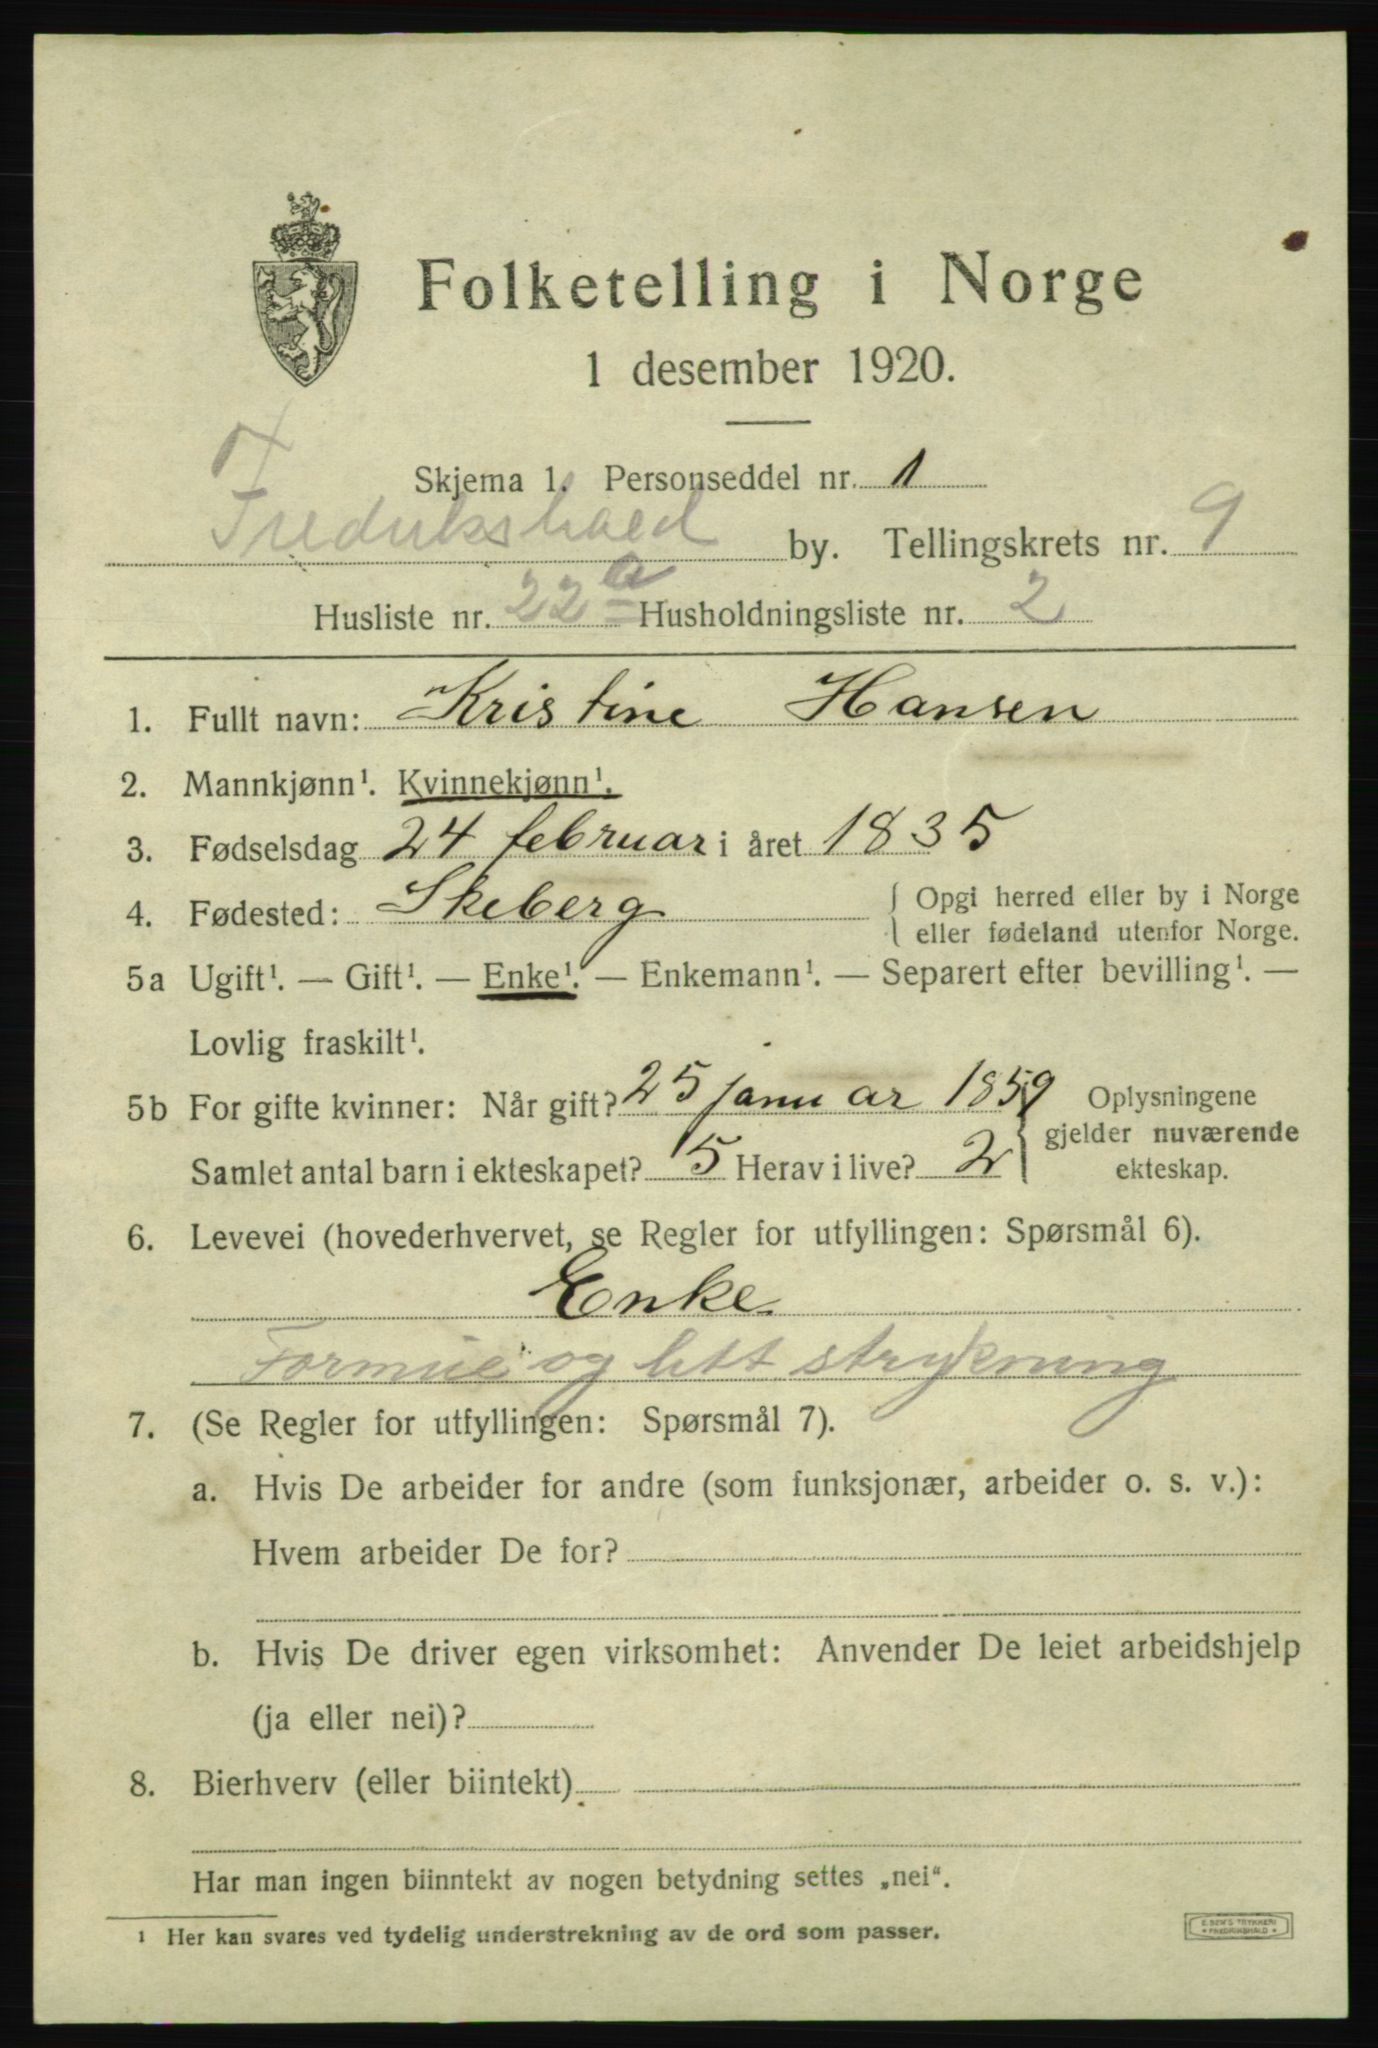 Folketelling i Norge
1 desember 1920.
Skjema 1. Personseddel nr. 1
Fredrikshald by. Tellingskrets nr. 9
Husliste nr. 22a Husholdningsliste nr. 2
1. Fullt navn: Kristine Hansen
2. Mannkjønn¹. Kvinnekjønn¹.
3. Fødselsdag 24 februar i året 1835
4. Fødested: Skeberg { Opgi herred eller by i Norge
eller fødeland utenfor Norge.
5a Ugift¹. — Gift¹. — Enke¹. — Enkemann¹. — Separert efter bevilling¹. —
Lovlig fraskilt¹.
5b For gifte kvinner: Når gift? 25 januar 1859
Samlet antal barn i ekteskapet? 5 Herav i live? 2
{ Oplysningene
gjelder nuværende
ekteskap.
6. Levevei (hovederhvervet, se Regler for utfyllingen: Spørsmål 6).
Enke
Formue og litt strykning
7. (Se Regler for utfyllingen: Spørsmål 7).
a. Hvis De arbeider for andre (som funksjonær, arbeider o. s. v.):
Hvem arbeider De for?
b. Hvis De driver egen virksomhet: Anvender De leiet arbeidshjelp
(ja eller nei)?
8. Bierhverv (eller biintekt)
Har man ingen biinntekt av nogen betydning settes „nei“.
¹ Her kan svares ved tydelig understrekning av de ord som passer.
E. SEM'S TRYKKERI
FREDRIKSHALD